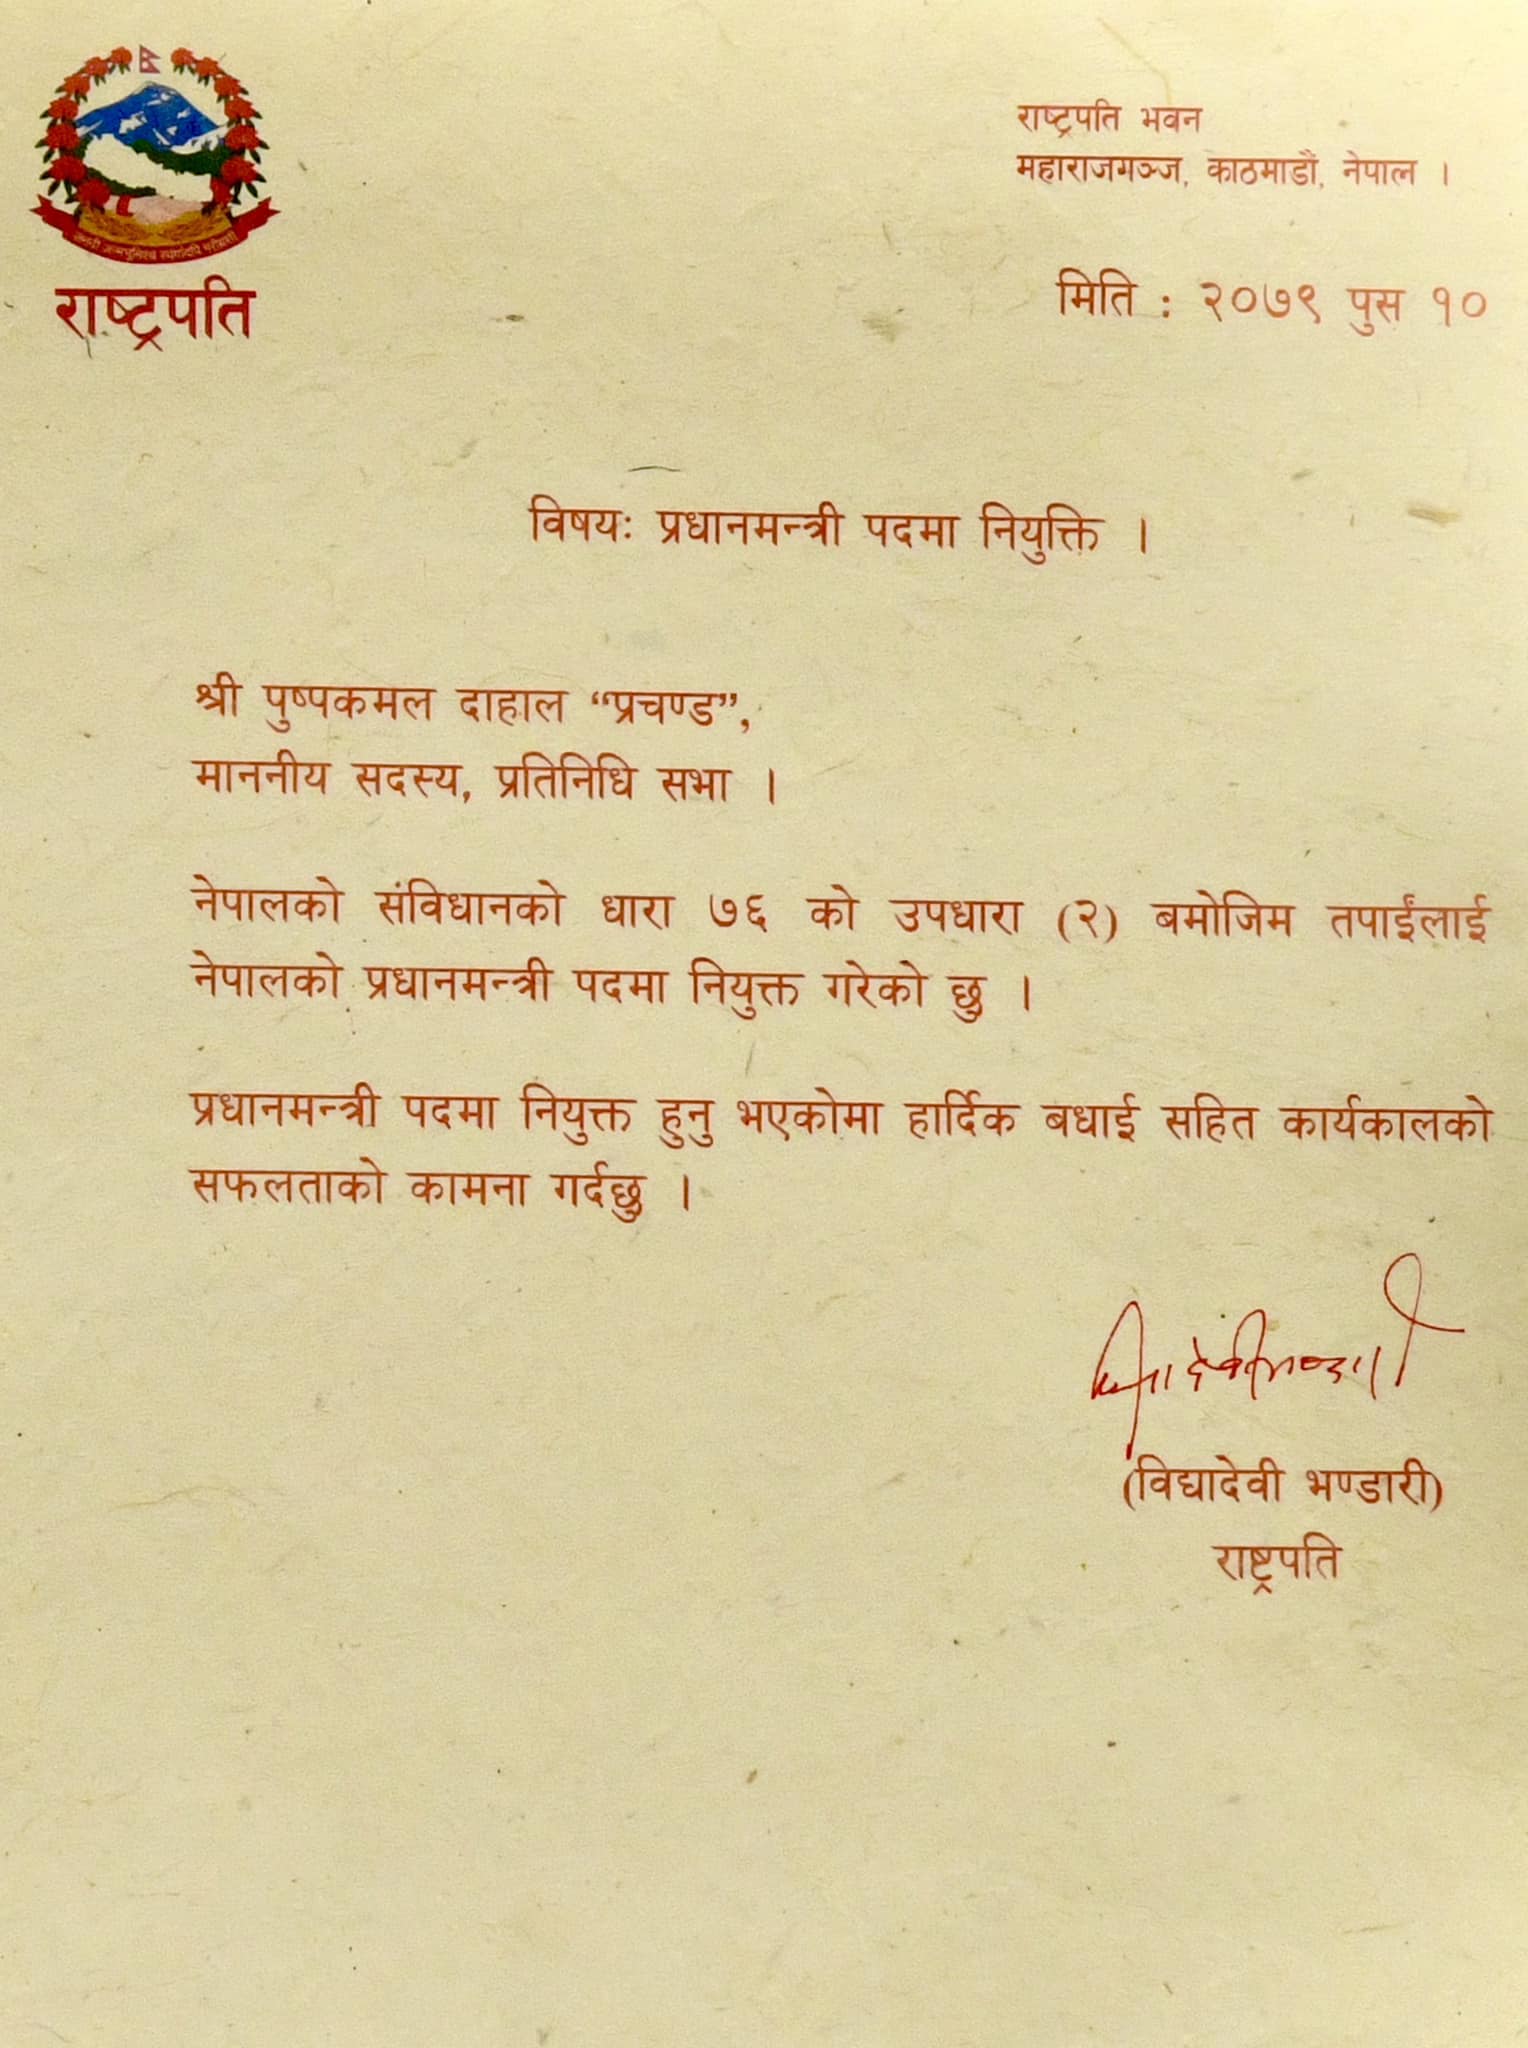 राष्ट्रपति भवन
महाराजगञ्ज, काठमाडौं, नेपाल ।
जननी जन्मभूमिश्च स्वर्गादपि गरीयसी
राष्ट्रपति
मिति : २०७९ पुस १०
विषयः प्रधानमन्त्री पदमा नियुक्ति ।
श्री पुष्पकमल दाहाल “प्रचण्ड”,
माननीय सदस्य, प्रतिनिधि सभा ।
नेपालको संविधानको धारा ७६ को उपधारा (२) बमोजिम तपाईंलाई
नेपालको प्रधानमन्त्री पदमा नियुक्त गरेको छु ।
प्रधानमन्त्री पदमा नियुक्त हुनु भएकोमा हार्दिक बधाई सहित कार्यकालको
सफलताको कामना गर्दछु ।
(विद्यादेवी भण्डारी)
राष्ट्रपति